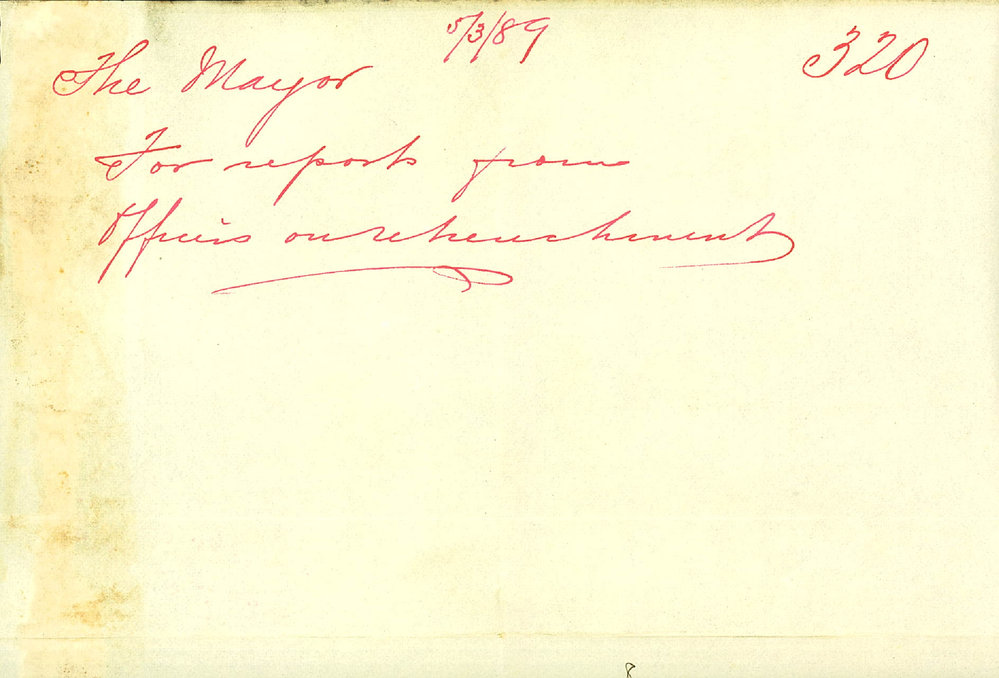 5/3/89
320
The Mayor
For reports from
Officers on retrenchment
8